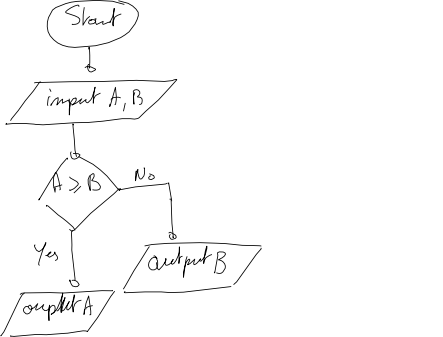 Start
input A, B
A ≥ B
No
Yes
output B
ouptut A